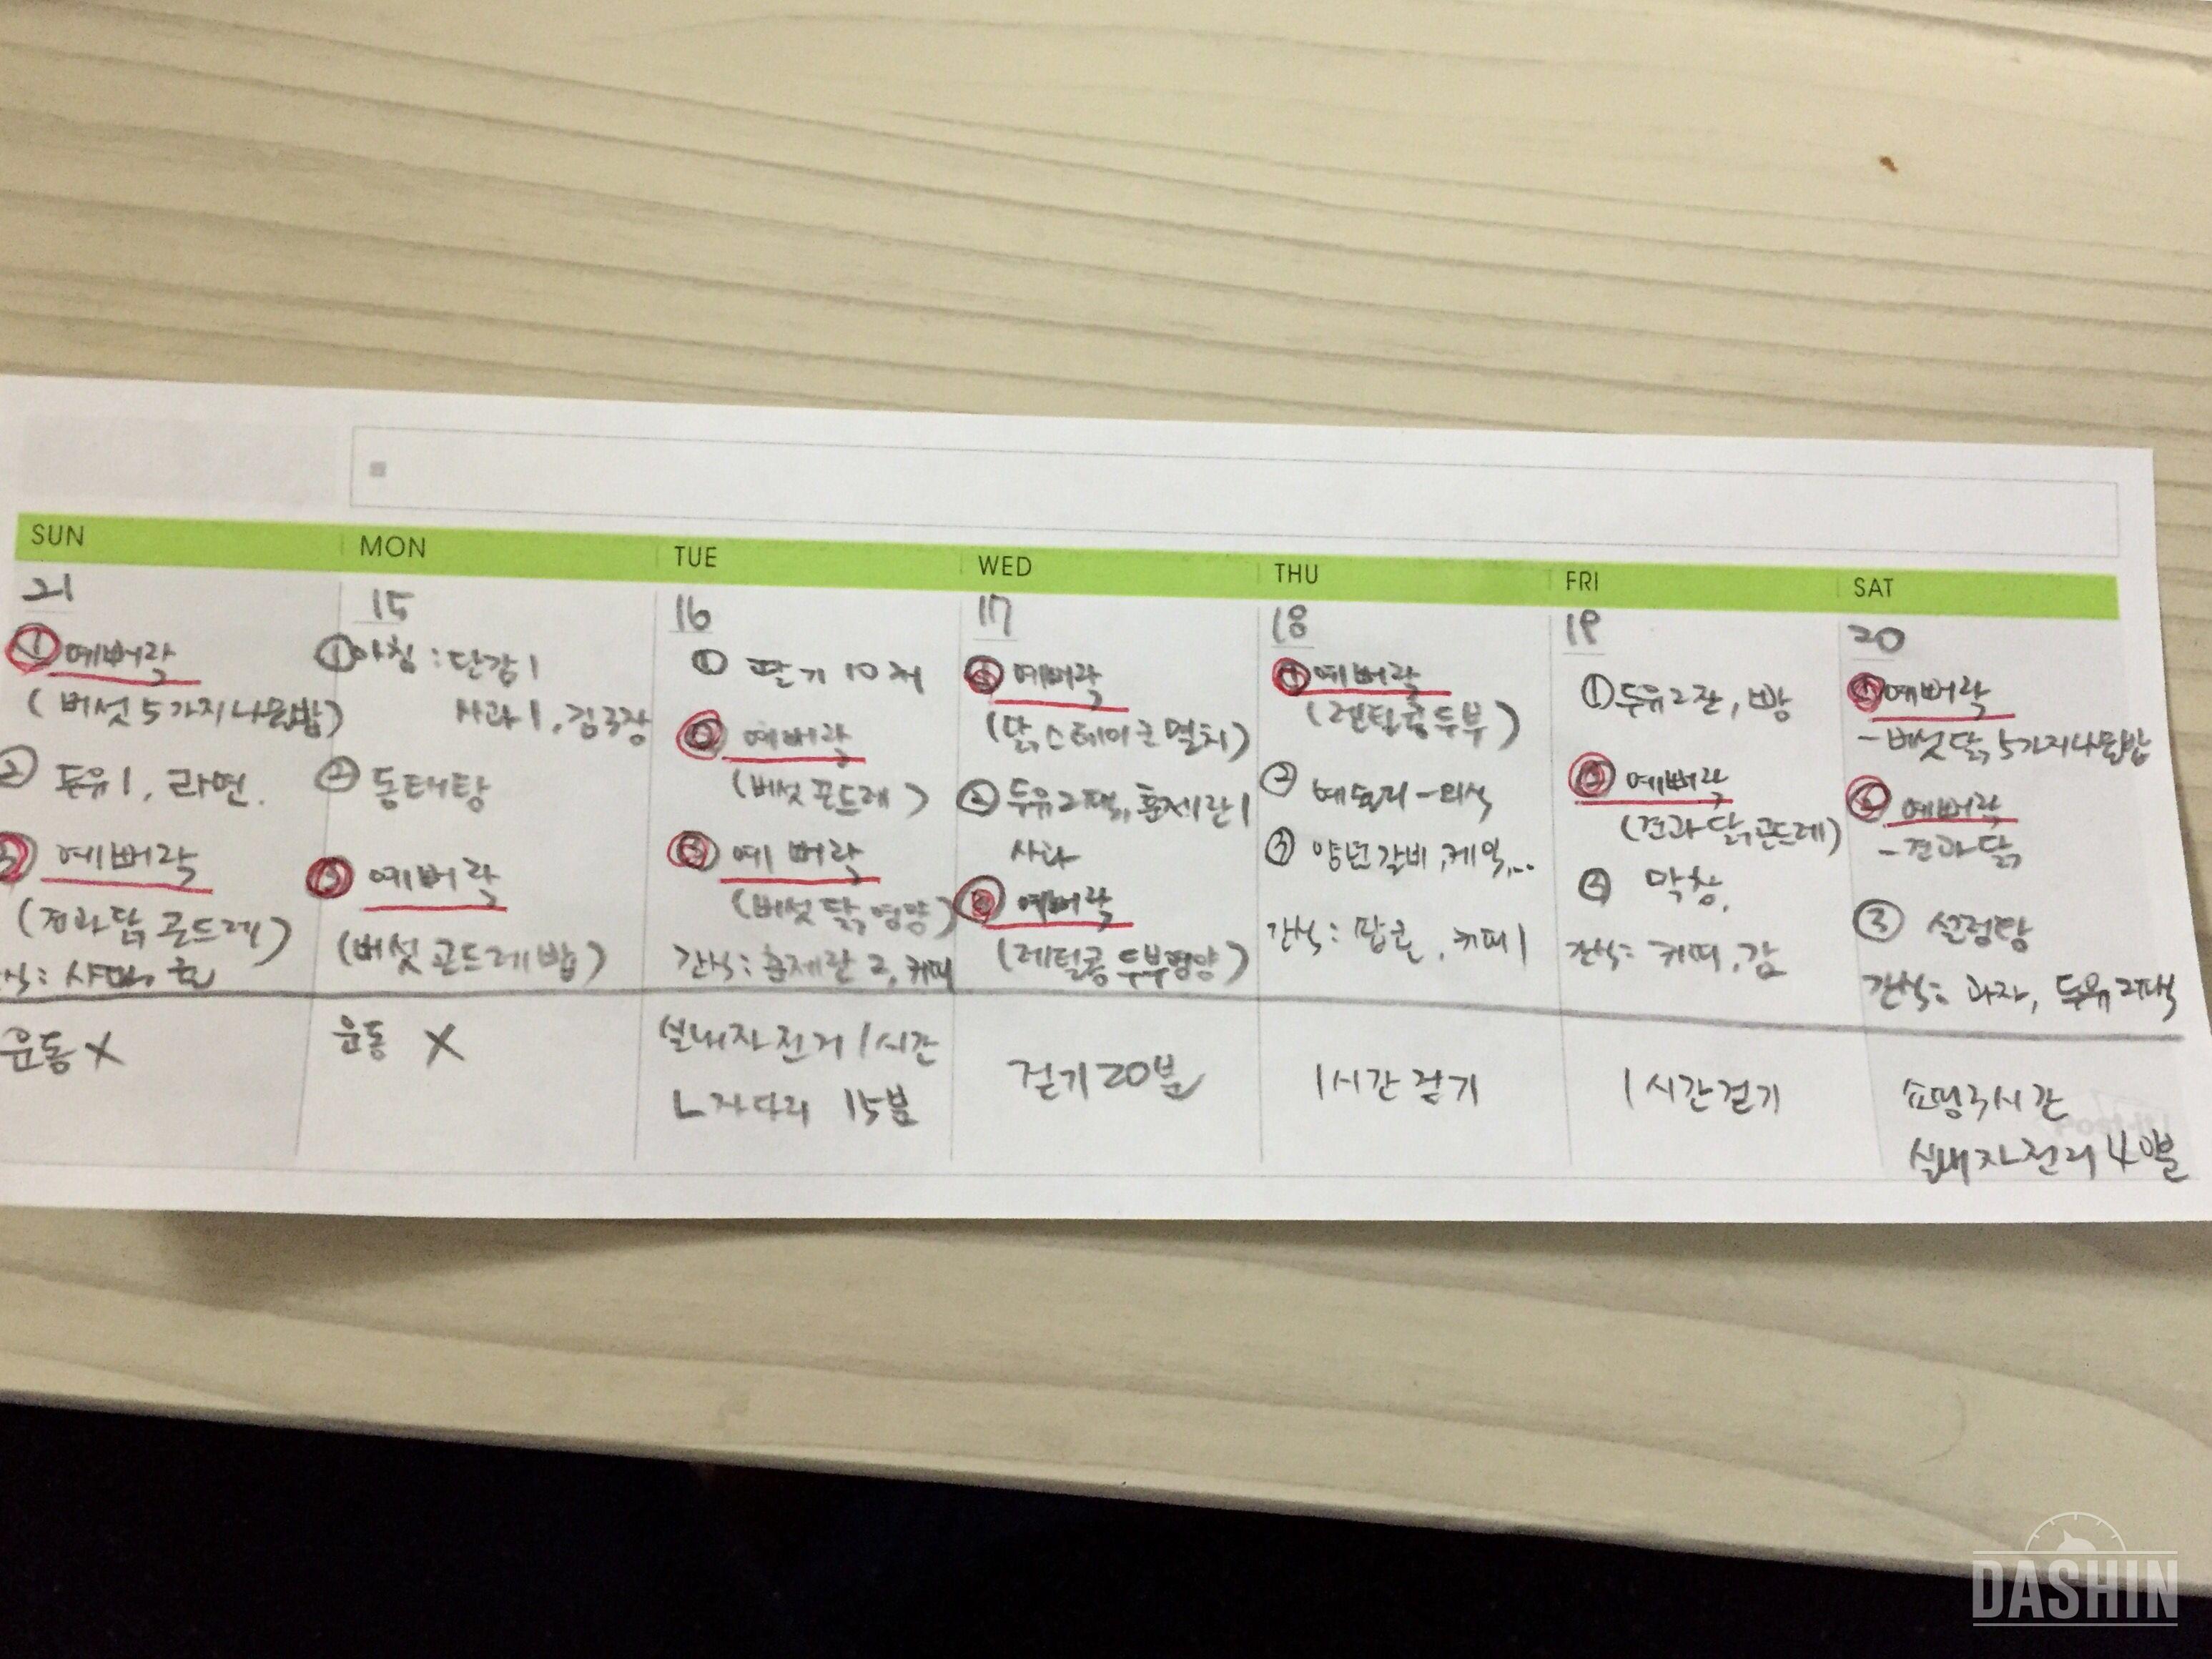 SUN
MON
TUE
WED
THU
FRI
SAT
21
① 예뻐락
(버섯 5가지나물밥)
② 두유1, 라면.
③ 예뻐락
(견과닭, 곤드레)
운동 X
15
① 아침 : 단감1
사과1, 김3장
② 동태탕
③ 예뻐락
(버섯곤드레밥)
운동 X
16
① 딸기 10개
② 예뻐락
(버섯곤드레)
③ 예뻐락
(버섯닭, 영양)
간식: 훈제란 2, 커피
실내자전거 1시간
L자다리 15분
17
① 예뻐락
(닭스테이크멸치)
② 두유2팩, 훈제란1
사과
③ 예뻐락
(렌틸콩두부영양)
걷기 20분
18
① 예뻐락
(렌틸콩두부)
②
③ 양념갈비, 케익,...
간식: 팝콘, 커피1
1시간 걷기
19
① 두유2잔, 빵
② 예뻐락
(견과닭, 곤드레)
③ 막창.
간식: 커피, 감
1시간걷기
20
① 예뻐락
-버섯닭, 5가지나물밥
② 예뻐락
-견과닭
③ 설렁탕
간식: 과자, 두유2팩
쇼핑3시간
실내자전거 40분
DASHIN